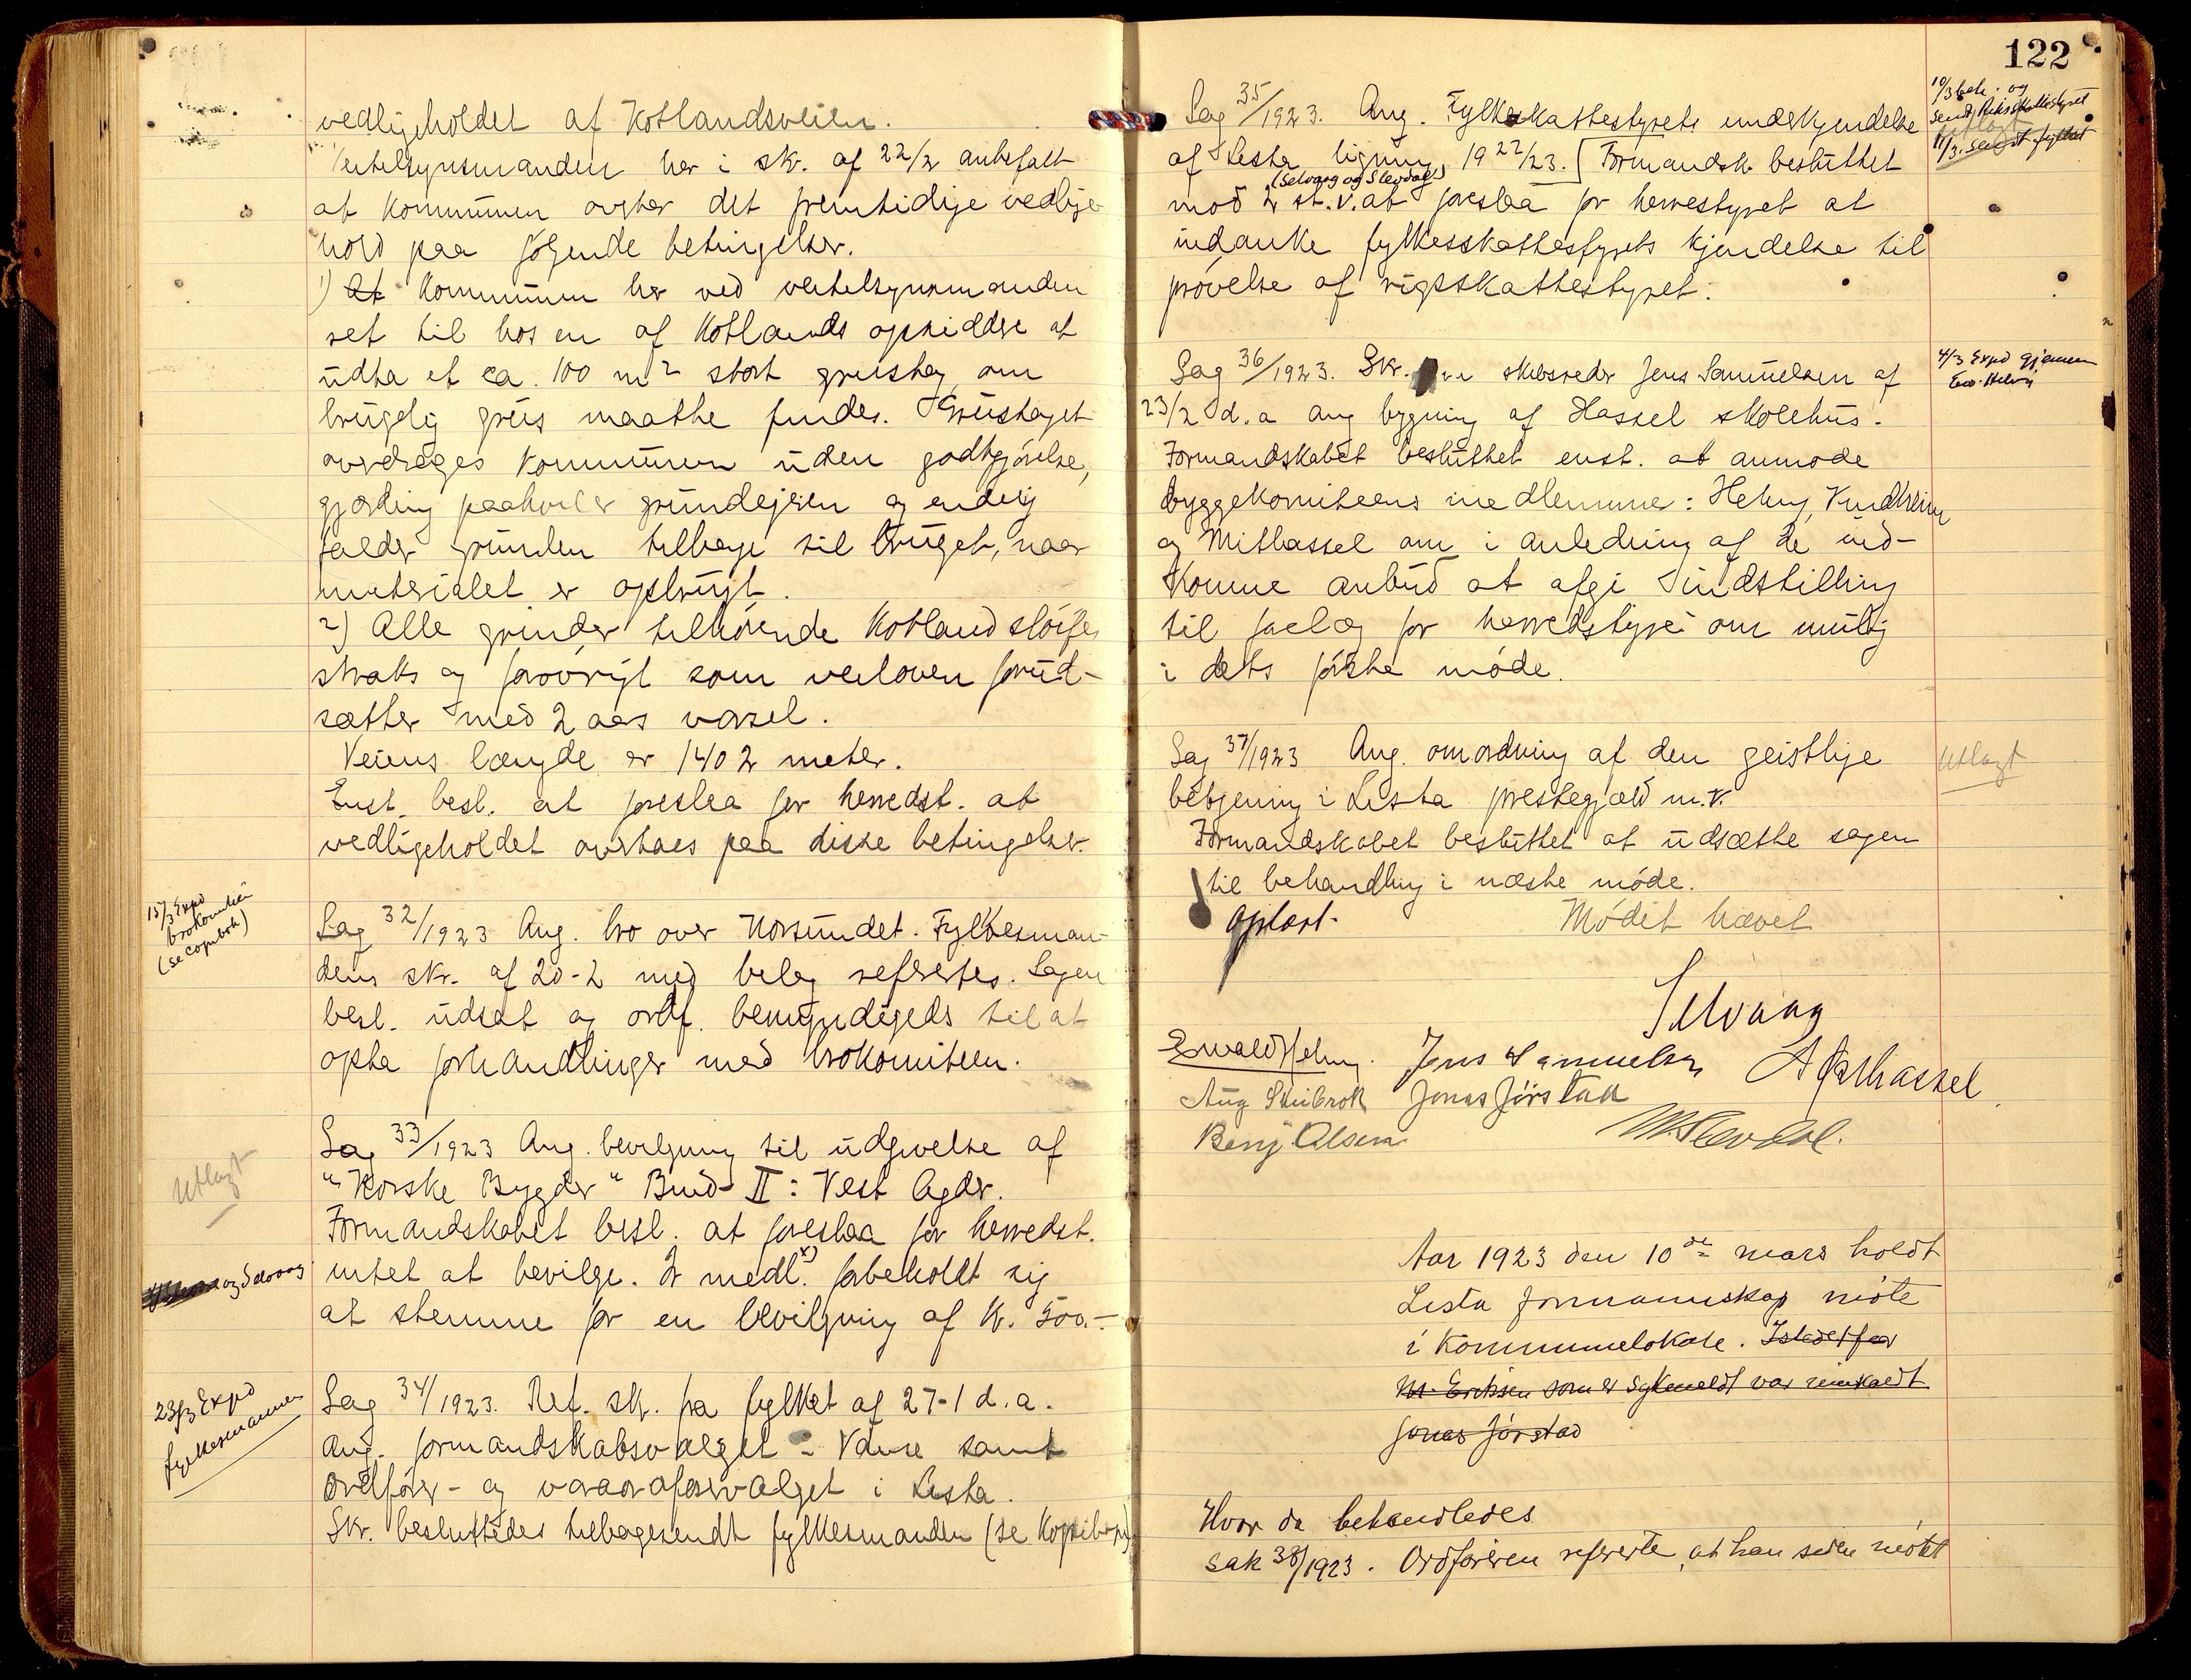 vedligeholdet af Kotlandsveien.
Veitilsynsmanden har i skr. af 22/2 anbefalt
at kommunen overtar det fremtidige vedlige-
hold paa følgende betingelser.
1) At kommunen har ved veitilsynsmanden
ret til hos en af Kotlands opsiddere at
udta et ca. 100 m2 stort grustag om
brugelig grus maatte findes. Grustaget
overdrages kommunen uden godtgjørelse,
gjærding paahviler grundejeren og endelig
falder grunden tilbage til bruget, naar
materialet er opbrugt.
2) Alle grinder tilhørende Kotland sløifes
straks og forøvrigt som veiloven forud-
sætter med 2 aars varsel.
Veiens længde er 1402 meter.
Enst. besl. at foreslaa for herredst. at
vedligeholdet overtaes paa disse betingelser.
15/3 Expd
brokomiteen
(se copibok)
Sag 32/1923 Ang. bro over Korsundet. Fylkesman-
dens skr. af 20-2 med beleg refereredes. Sagen
besl. udsat og ordf. bemyndigeds til at
opta forhandlinger med brokomiteen.
Utlagt
Sag 33/1923 Ang. bevilgning til udgivelse af
"Norske Bygder" Bind II: Vest Agder.
Formandskabet besl. at foreslaa for herredst.
intet at bevilge. 2 medl. x) forbeholdt sig
og Selvaag
at stemme for en bevilgning af Kr. 500.-
23/3 Expd
fylkesmannen
Sag 34/1923. Ref. skr. fra fylket af 27-1 d.a.
Ang. formandskabsvalget i Vanse samt
ordfører- og varaordførervalget i Lista.
Skr. besluttedes tilbagesendt fylkesmanden (se Kopibok)
122
10/3 bek. og
sendt Riksskattestyret
utlagt
11/3. sendt fylket
Sag 35/1923. Ang. Fylkesskattestyrets undskjendelse
af Lista ligning 1922/23. [Formandsk. besluttet
(Selvaag og Slevdal)
mod 2 st. v. at foreslaa for herrestyret at
indanke fylkesskattestyrets kjendelse til
prøvelse af rigsskattestyret.
4/3 Expd gjennem
Ew. Helvig
Sag 36/1923. Skr. fra skibsreder Jens Samuelsen af
23/2 d.a ang bygning af Hassel skolehus.
Formandskabet besluttet enst. at anmode
byggekomiteens medlemmer: Helvig, Vindheim
og Mithassel om i anledning af de ind-
komne anbud at afgi indstilling
til forelæg for herredstyret om mulig
i dets første møde.
Utlagt
Sag 37/1923 Ang. omordning af den geistlige
betjening i Lista prestegjæld m.v.
Formandskabet besluttet at udsætte sagen
til behandling i næste møde.
Oplæst. Mødet hævet
Selvaag
Ewald Helvig. Jens Samuelsen A Østhassel
Aug Skeibrok Jonas Jørstad
M. Slevdal.
Benj. Olsen
Aar 1923 den 10de mars holdt
Lista formannskap møte
i kommunelokale. Istedetfor
M. Eriksen som er sykmeldt var innkaldt
Jonas Jørstad
Hvor da behandledes
sak 38/1923. Ordføreren refererte, at han siden møtet